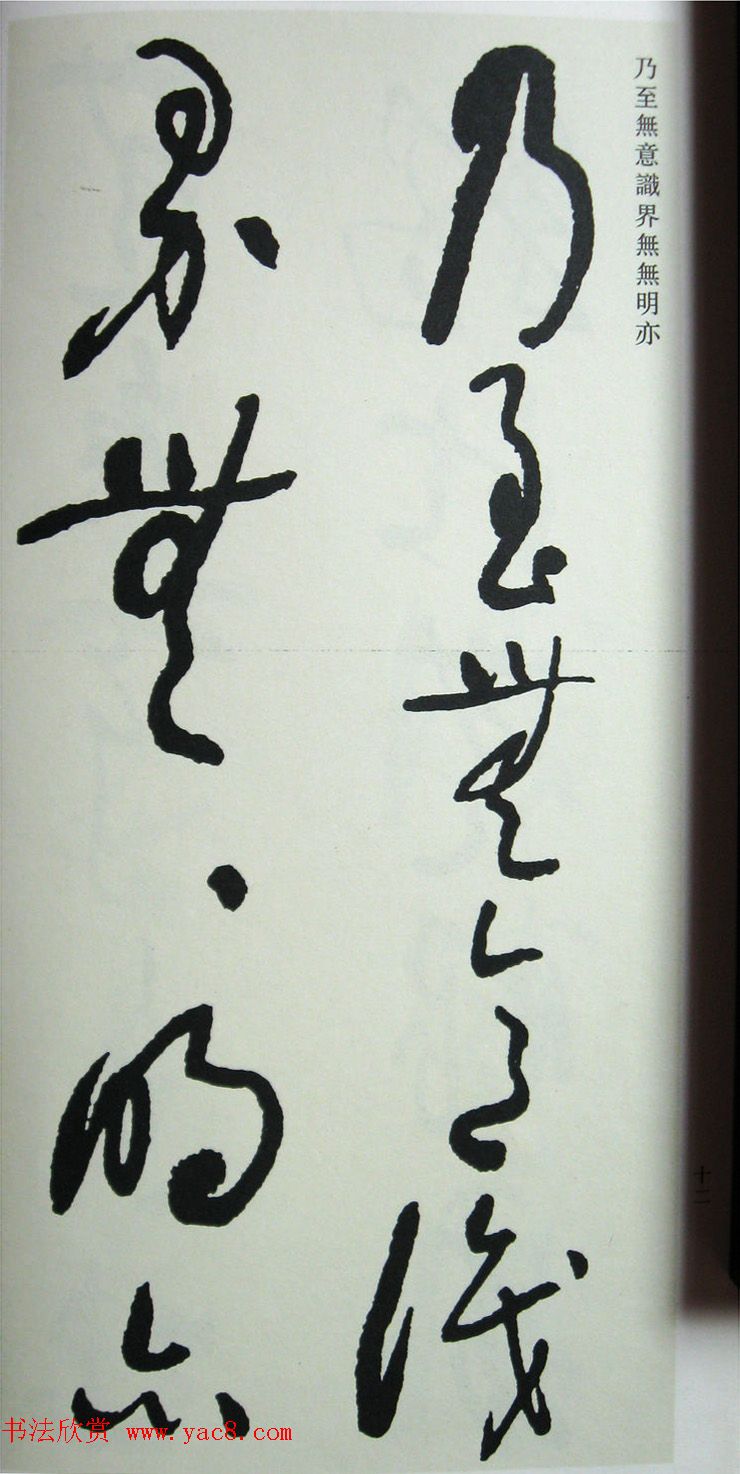 乃至無意識界無無明亦
乃至無意識
界無、明亦
十二
书法欣赏 www.yac8.com